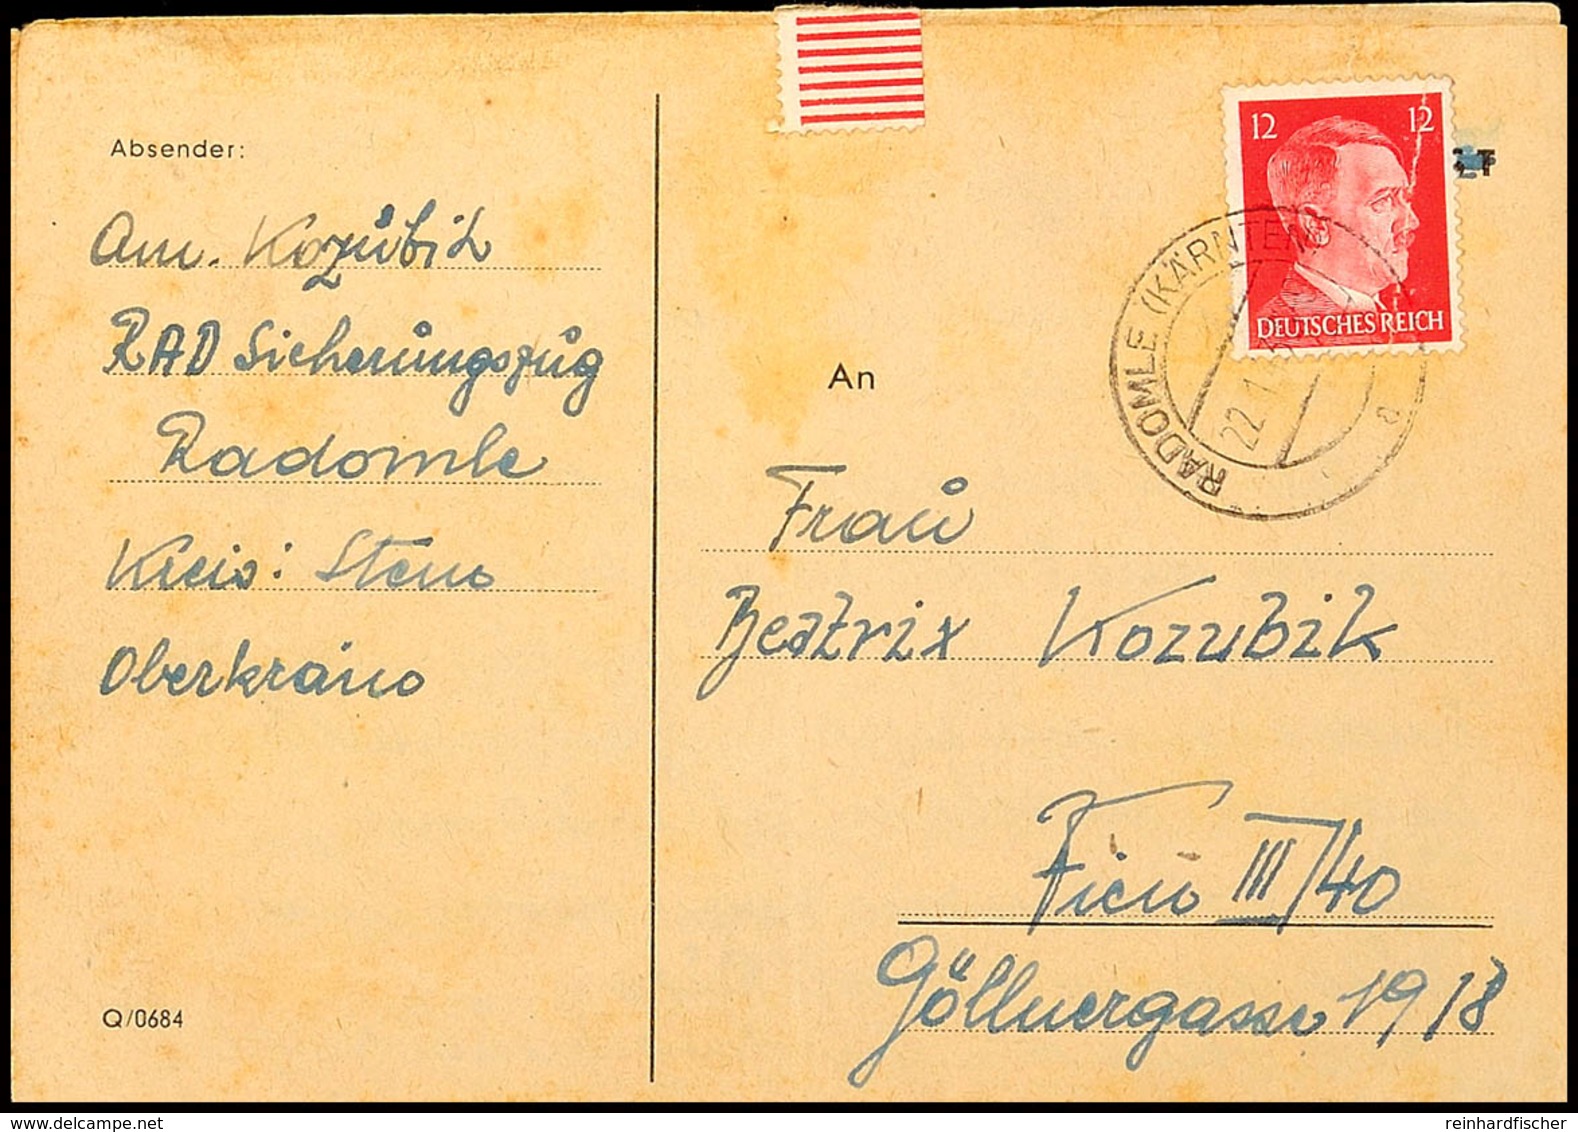 Absender:
Am. Kozubik
RAD Sicherungszug
Radomle
Kreis: Stein
Oberkrain
Q/0684
12 12
DEUTSCHES REICH
RADOMLE (KÄRNTEN)
22.1.
a
An
Frau
Beatrix Kozubik
Wien III/40
Göllnergasse 19/18
reinhardfischer